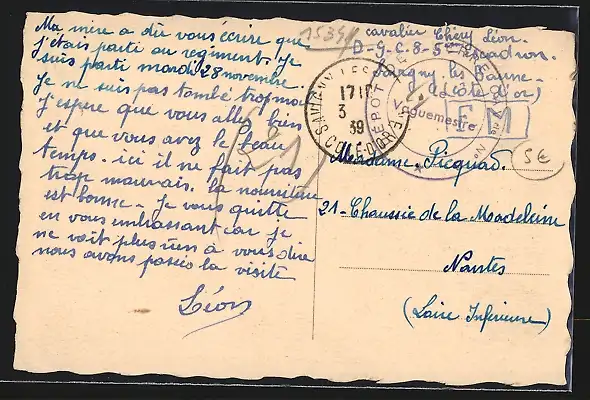 Ma mère a dû vous écrire que
j'étais parti au régiment. Je
suis parti mardi 28 novembre.
Je ne suis pas tombé trop mal
J'espère que vous allez bien
et que vous avez le beau
temps. ici il ne fait pas
trop mauvais. la nourriture
est bonne. Je vous quitte
en vous embrassant car je
ne voit plus rien à vous dire
nous avons passés la visite
Léon
15394
cavalier Chéry Léon.
D-G.C.8-5ème Escadron.
Savigny les Beaune
(Côte d'or)
17 15
3
39
CÔTE-D'OR
DEPOT
Vaguemestre
F M
5€
21
Madame Picquad.
21-Chaussie de la Madeleine
Nantes
(Loire Inférieure)